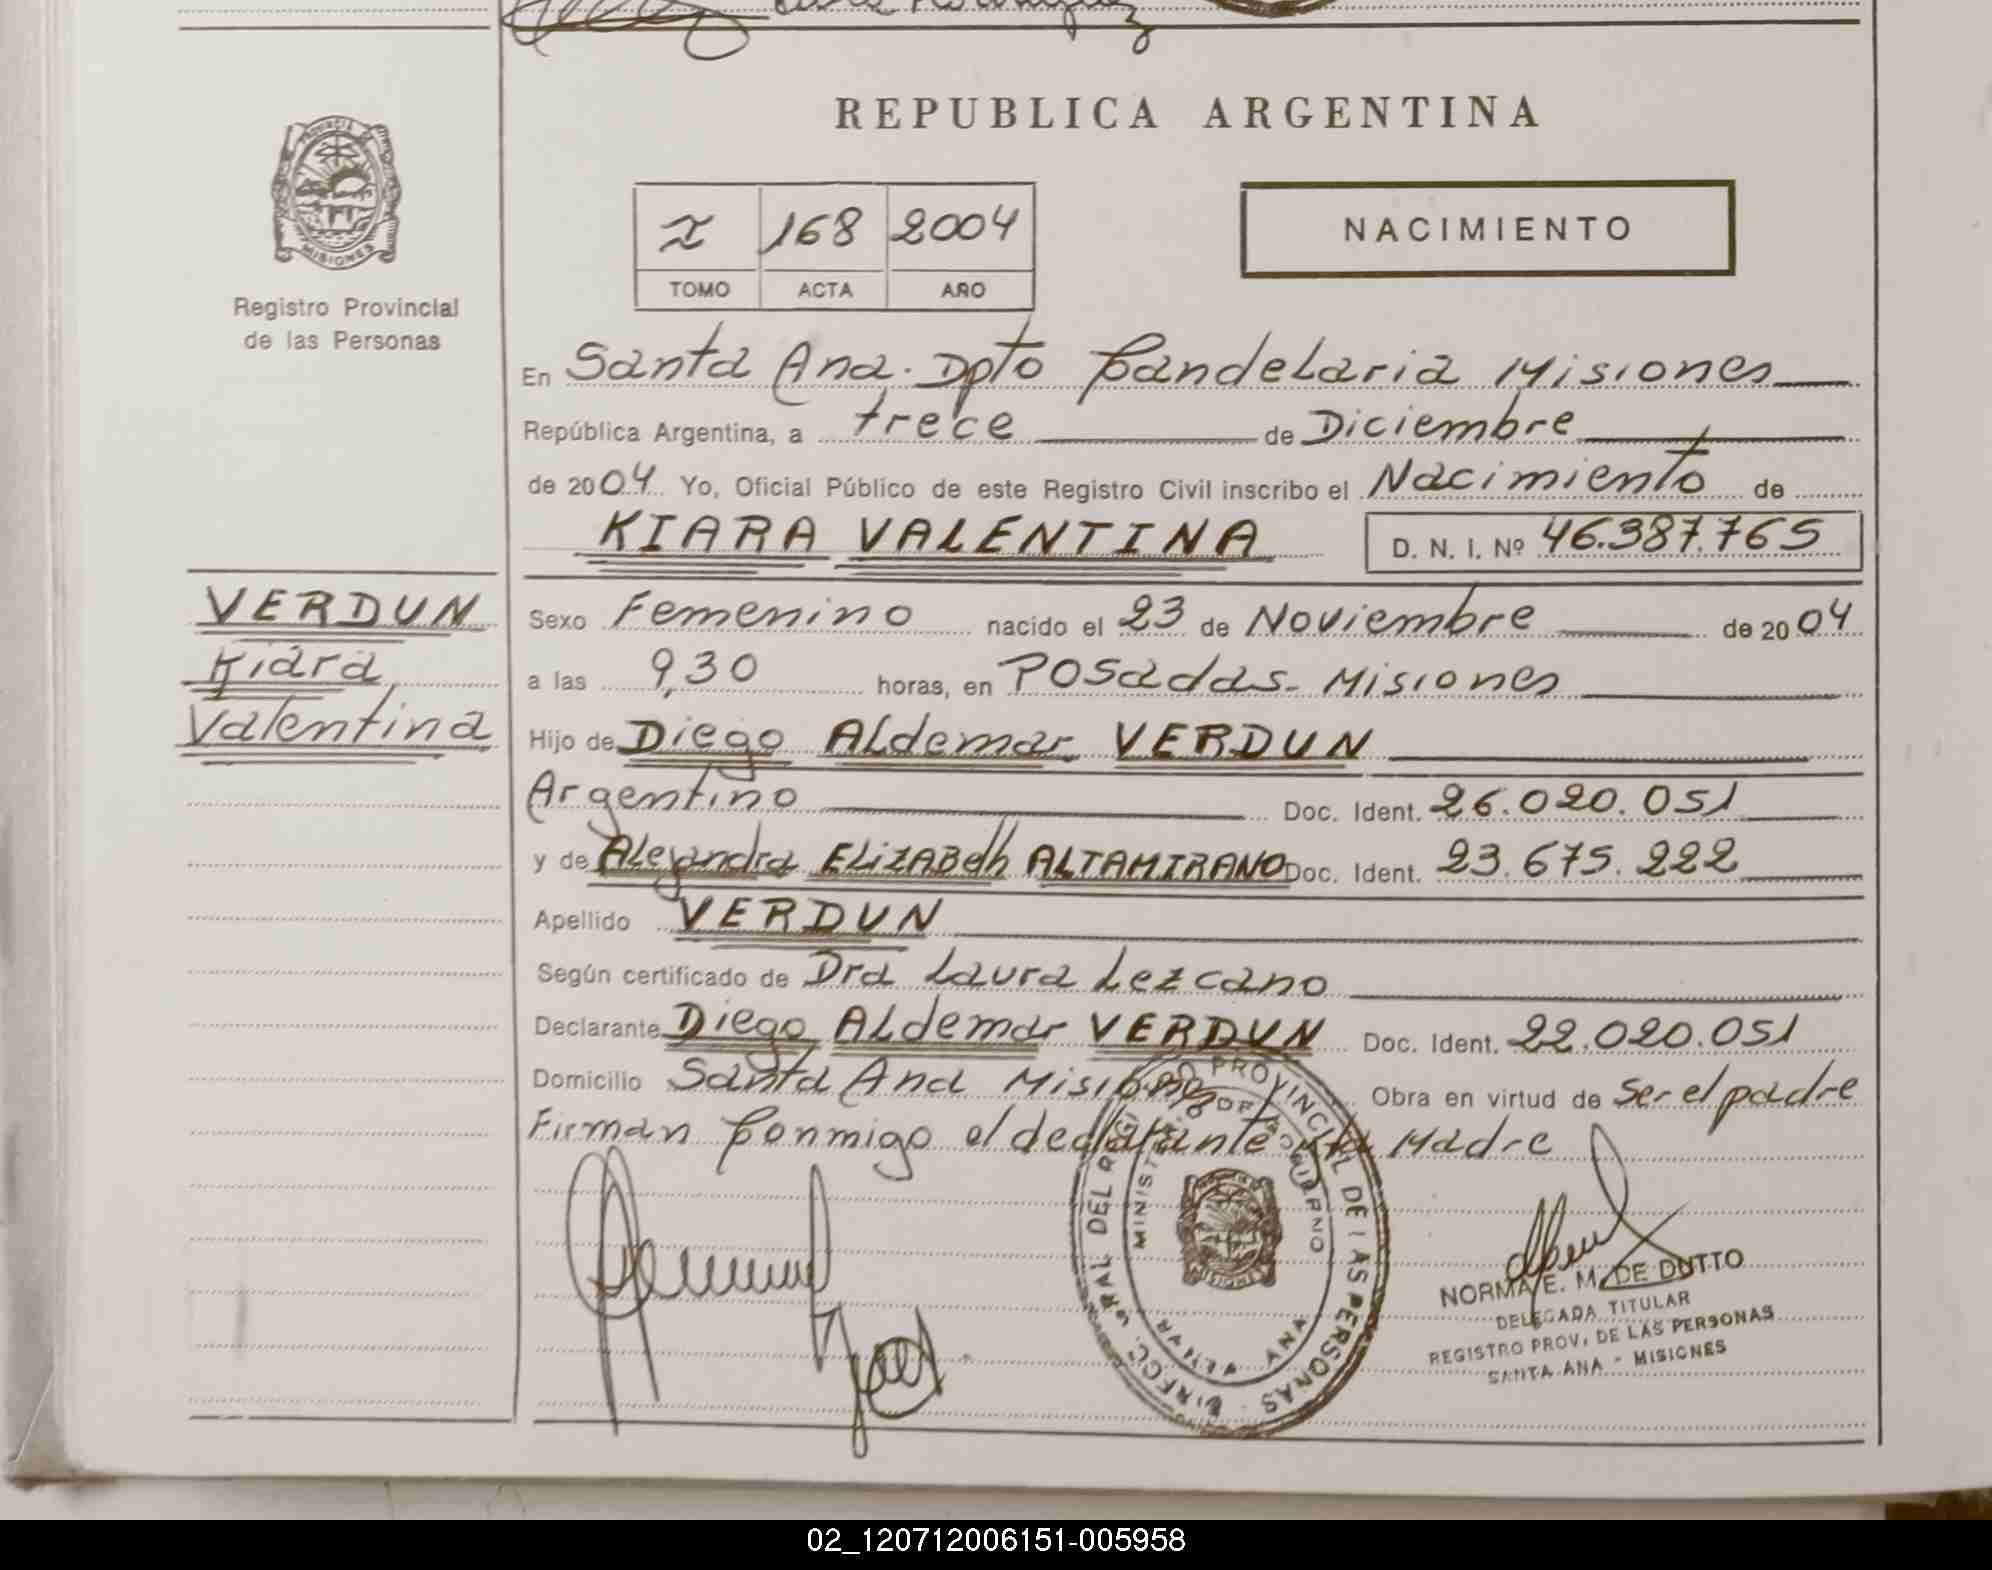 REPUBLICA ARGENTINA
PROVINCIA DE MISIONES
Registro Provincial
de las Personas
168 2004
TOMO ACTA AÑO
NACIMIENTO
En Santa Ana. Dpto Candelaria Misiones
República Argentina, a trece de Diciembre
de 2004 Yo, Oficial Público de este Registro Civil inscribo el Nacimiento de
KIARA VALENTINA D. N. I. Nº 46.387.765
VERDUN
Kiara
Valentina
Sexo Femenino nacido el 23 de Noviembre de 2004
a las 9,30 horas, en Posadas - Misiones
Hijo de Diego Aldemar VERDUN
Argentino Doc. Ident. 26.020.051
y de Alejandra ELIZABETh ALTAMIRANO Doc. Ident. 23.675.222
Apellido VERDUN
Según certificado de Dra Laura Lezcano
Declarante Diego Aldemar VERDUN Doc. Ident. 22.020.051
Domicilio Santa Ana Misiones Obra en virtud de Ser el padre
Firman Conmigo el declarante Madre
DIRECC. GRAL DEL REGISTRO PROVINCIAL DE LAS PERSONAS
MINISTERIO DE GOBIERNO
ANA
NORMA E. M. DE DUTTO
DELEGADA TITULAR
REGISTRO PROV. DE LAS PERSONAS
SANTA ANA - MISIONES
02_120712006151-005958